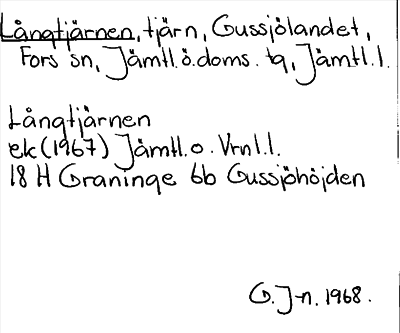 Långtjärnen, tjärn, Gussjölandet,
Fors sn, Jämtl.ö.doms. tg, Jämtl.l.
Långtjärnen
ek (1967) Jämtl. o. Vrnl.l.
18 H Graninge 6b Gussjöhöjden
G. J-n. 1968.